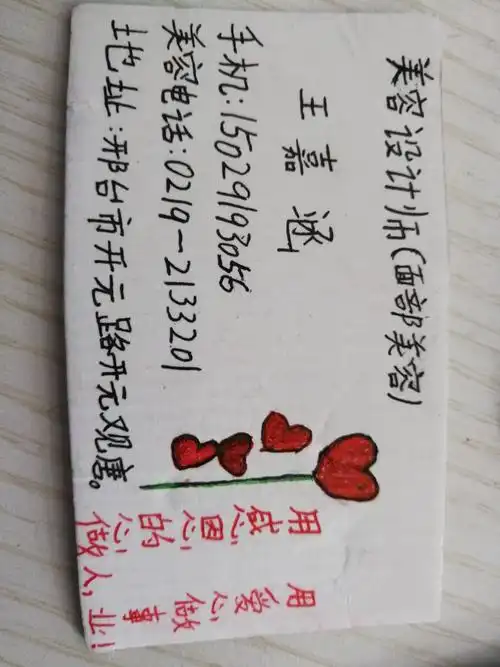 美容设计师(面部美容)
王嘉涵
手机:15029193056
美容电话:0219-2133201
地址:邢台市开元路开元观唐。
用感恩的心做人,
用爱心做事业!